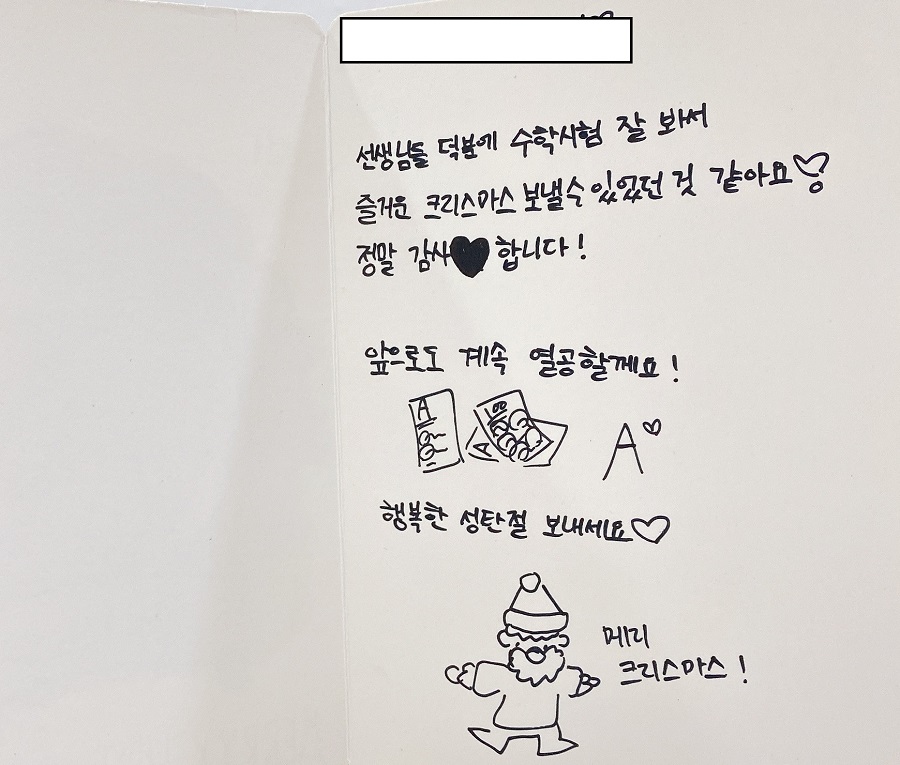 선생님들 덕분에 수학시험 잘 봐서
즐거운 크리스마스 보낼수 있었던 것 같아요♡
정말 감사♥합니다!
앞으로도 계속 열공할께요!
A
A 100
A
A♡
행복한 성탄절 보내세요♡
메리
크리스마스!